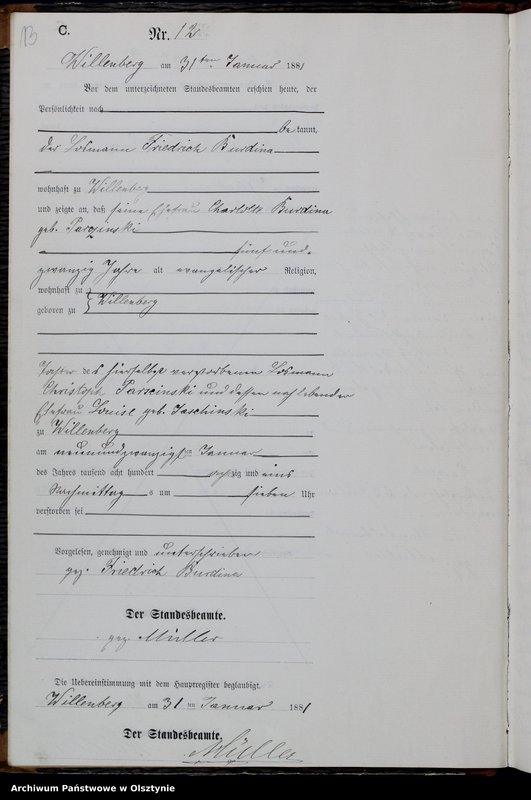 13
C.
Nr. 12
Willenberg am 31ten Januar 1881
Vor dem unterzeichneten Standesbeamten erschien heute, der
Persönlichkeit nach
bekannt,
der Losmann Friedrich Burdina
wohnhaft zu Willenberg
und zeigte an, daß seine Ehefrau Charlotte Burdina
geb.
fünf und
zwanzig Jahre alt evangelischer Religion,
wohnhaft zu
geboren zu } Willenberg
Tochter des hierselbst verstorbenen Losmann
Christoph und dessen noch lebender
Ehefrau Louise geb.
zu Willenberg
am neunundzwanzigsten Januar
des Jahres tausend acht hundert achtzig und eins
Nachmittags um sieben Uhr
verstorben sei
Vorgelesen, genehmigt und unterschrieben
gez. Friedrich Burdina
Der Standesbeamte.
gez. Müller
Die Uebereinstimmung mit dem Hauptregister beglaubigt.
Willenberg am 31 ten Januar 1881
Der Standesbeamte.
Müller
Archiwum Państwowe w Olsztynie